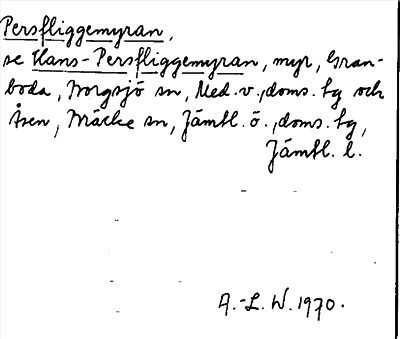 Persfliggemyran,
se Hans-Persfliggemyran, myr, Gran-
boda, Borgsjö sn, Med.v., doms. tg och
Åsen, Bräcke sn, Jämtl. ö., doms. tg,
Jämtl. l.
A.-L. W. 1970.